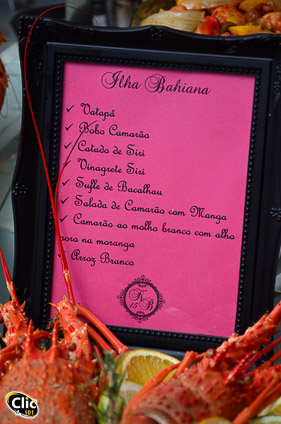 Ilha Bahiana
✓ Vatapá
✓ Bobo Camarão
✓ Catado de Siri
✓ Vinagrete Siri
✓ Sufle de Bacalhau
✓ Salada de Camarão com Manga
✓ Camarão ao molho branco com alho
poro na moranga
Arroz Branco
15
Clic
101